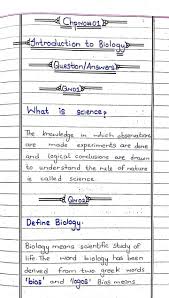 Chp#No#01
Introduction to Biology
Question/Answers
Q#No#1
What is science?
The knowledge in which observations
are made experiments are done
and logical conclusions are drawn
to understand the rule of nature
is called science.
Q#No#2
Define Biology:
Biology means scientific study of
life. The word biology has been
derived from two greek words
"bios" and "logos" Bios means